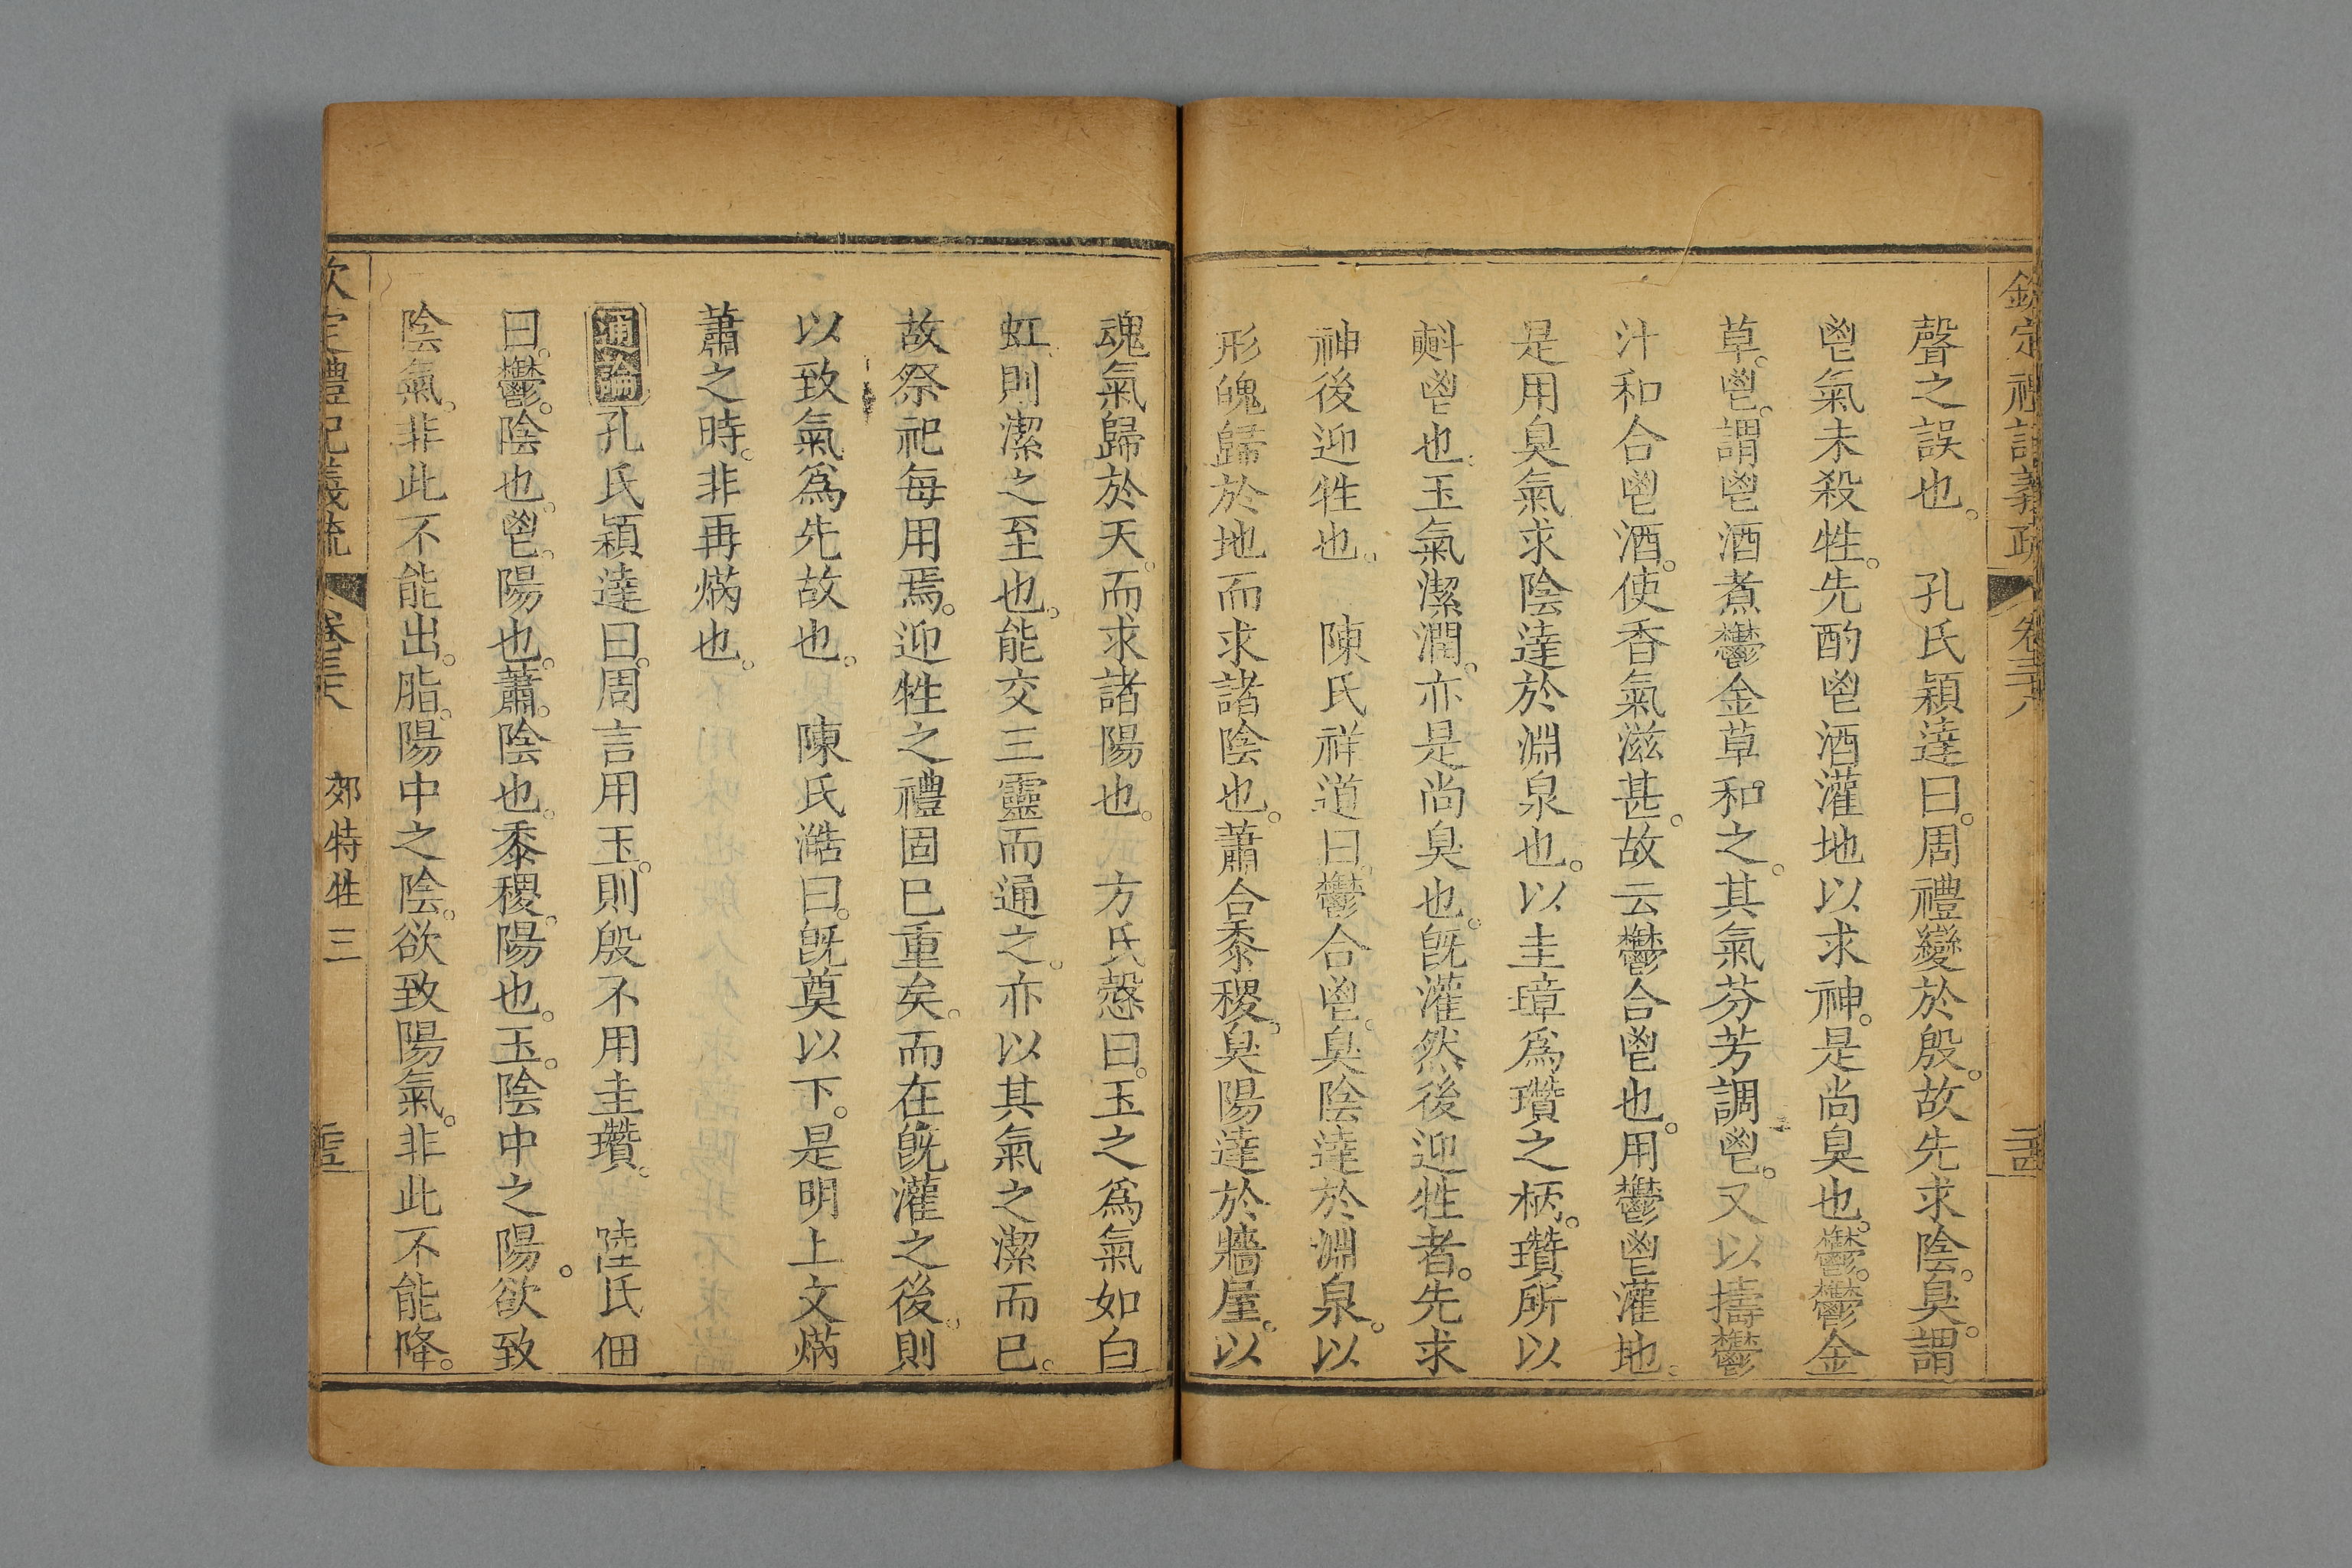 欽定禮記義疏 卷三十八
聲之誤也。 孔氏穎達曰。周禮變於殷。故先求陰。臭。謂
鬯氣未殺牲。先酌鬯酒灌地以求神。是尚臭也。鬱。鬱金
草。鬯。謂鬯酒煮鬱金草。和之。其氣芬芳調鬯。又以擣鬱
汁和合鬯酒。使香氣滋甚。故云鬱合鬯也。用鬱鬯灌地。
是用臭氣求陰達於淵泉也。以圭璋爲瓚之柄。瓚所以
㪺鬯也。玉氣潔潤。亦是尚臭也。旣灌然後迎牲者。先求
神後迎牲也。 陳氏祥道曰。鬱合鬯。臭陰達於淵泉。以
形魄歸於地而求諸陰也。蕭合黍稷。臭陽達於牆屋。以
魂氣歸於天。而求諸陽也。 方氏慤曰。玉之爲氣如白
虹。則潔之至也。能交三靈而通之。亦以其氣之潔而已。
故祭祀每用焉。迎牲之禮固已重矣。而在旣灌之後。則
以致氣爲先故也。 陳氏澔曰。旣奠以下。是明上文焫
蕭之時。非再焫也。
通論 孔氏穎達曰。周言用玉。則殷不用圭瓚。 陸氏佃
曰。鬱。陰也。鬯。陽也。蕭。陰也。黍稷。陽也。玉。陰中之陽。欲致
陰氣。非此不能出。脂。陽中之陰。欲致陽氣。非此不能降。
欽定禮記義疏 卷三十八 郊特牲三